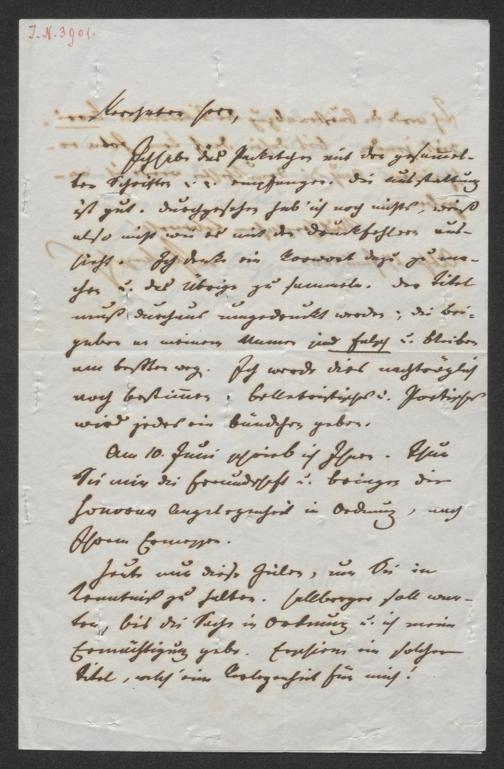 J.N. 3901.
Verehrter Herr,
Ich habe das Packetchen mit den gesammel-
ten Schriften empfangen. Die Ausstattung
ist gut. Durchgesehen hab' ich noch nichts, weiß
also nicht wie es mit den Druckfehlern aus-
sieht. Ich denke ein Vorwort dazu zu ma-
chen u. das Übrige zu sammeln. Der Titel
muß durchaus umgedruckt werden; die bei-
gaben zu meinem Namen sind falsch u. bleiben
am besten weg. Ich werde dies nachträglich
noch bestimmen, belletristisches u. Poetisches
wird jedes ein Bändchen geben.
Am 10. Juni schrieb ich Ihnen. Thun
Sie mir die Freundschaft u. bringen die
Honorar Angelegenheit in Ordnung, nach
Ihrem Ermessen.
Heute nur diese Zeilen, um Sie in
Kenntniß zu halten. Hallberger soll war-
ten, bis die Sache in Ordnung u. ich meine
Ermächtigung gebe. Erschiene ein solcher
Titel, welch' eine Verlegenheit für mich!